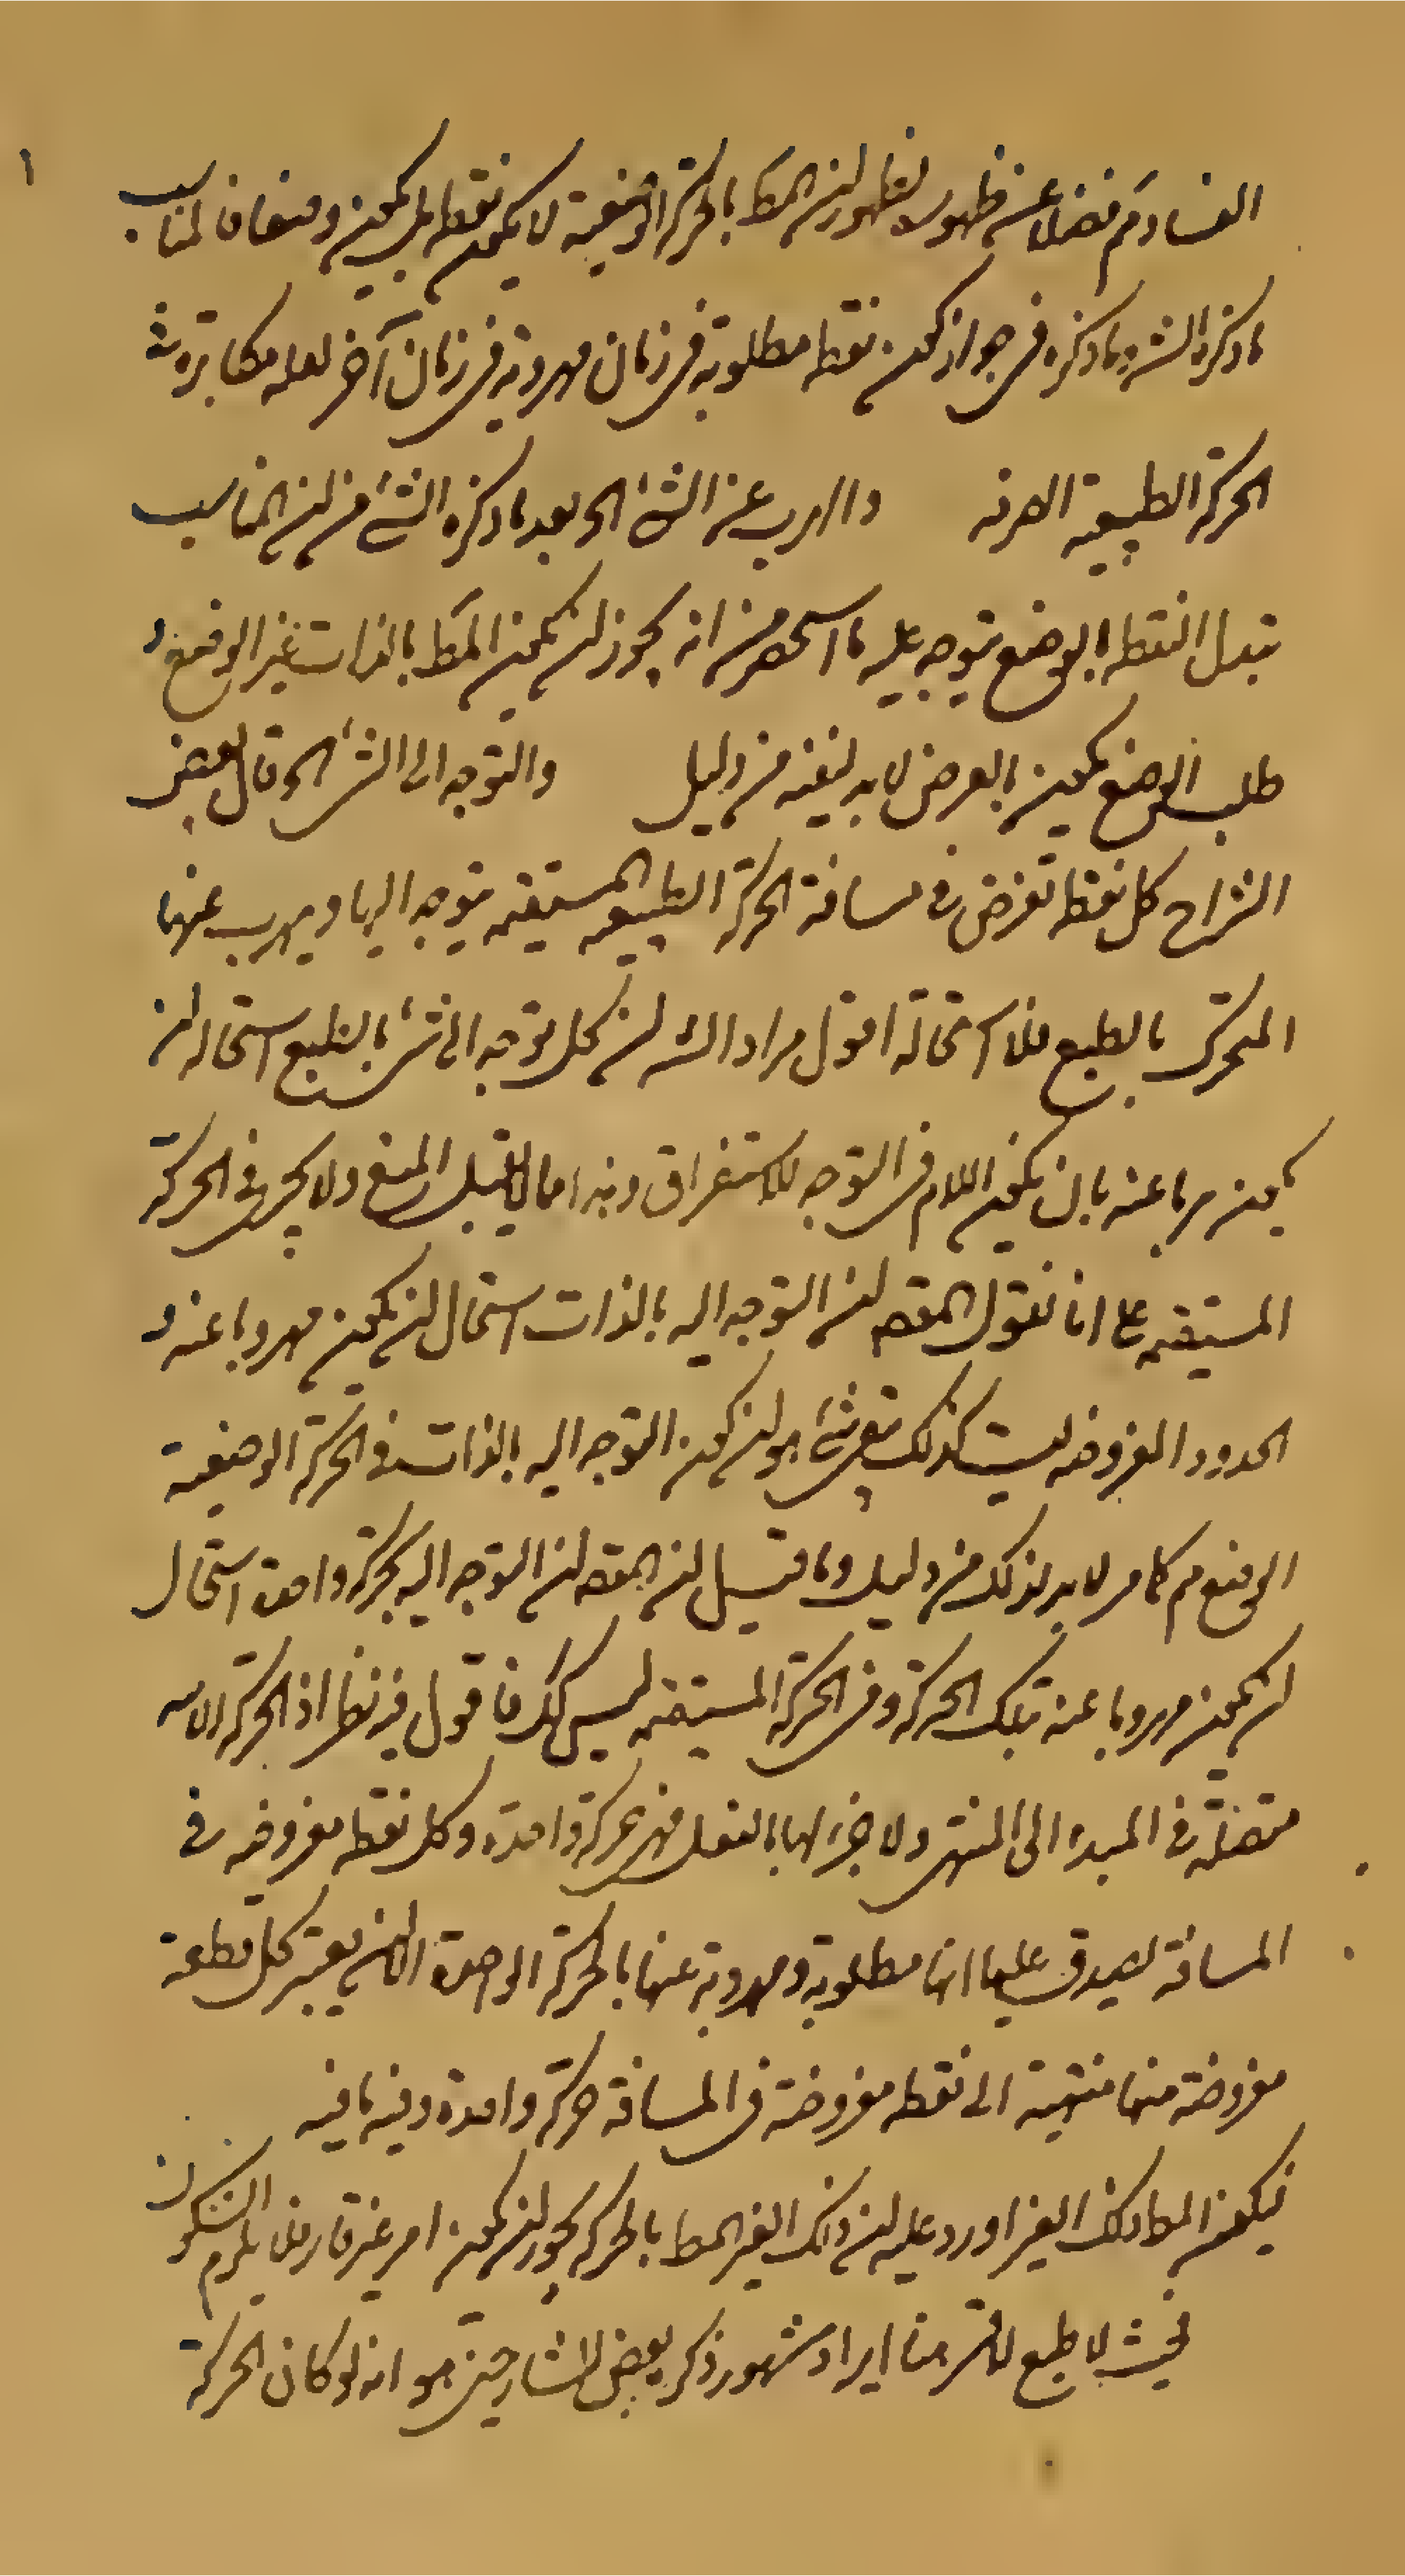 الفساد ثم فضلا عن ظهوره لظهور ان المط بالحركة الوضعية لا يكون نقطة بل يكون وضعا فالمناسب
ما ذكره الش وما ذكره في جواز كون نقطة مطلوبة في زمان مهروبة في زمان آخر لعله مكابرة في
الحركة الطبيعية الصرفة والهرب عن الشئ الخ بعد ما ذكره الش من ان المناسب
تبدل النقطة بالوضع يتوجه عليه ما استحضر من انه يجوز ان يكون المط بالذات غير الوضع و
طلب الوضع يكون بالعرض لا بد لنفيه من دليل والتوجه الى الشئ الخ قال بعض
الشراح كل نقطة تفرض في مسافة الحركة الطبيعية المستقيمة يتوجه اليها ويهرب عنها
المتحرك بالطبع فلا استحالة اقول مراد الش ان كل توجه الى شئ بالطبع استحالة ان
يكون هربا عنه بان يكون اللام في التوجه للاستغراق وهذا مما لا يقبل المنع ولا يجري في الحركة
المستقيمة على انا نقول المقصد ان التوجه اليه بالذات استحال ان يكون مهروبا عنه و
الحدود المفروضة ليست كذلك بقي شئ هو ان كون التوجه اليه بالذات في الحركة الوضعية
الوضع م كما مر لا بد لذلك من دليل وما قيل ان المقصد ان التوجه اليه بحركة واحدة استحال
ان يكون مهروبا عنه بتلك الحركة وفي الحركة المستقيمة ليس كك فاقول فيه نظر اذ الحركة الاينية
متصلة في المبدء الى المنتهى ولا جزء لها بالفعل فهي حركة واحدة وكل نقطة مفروضة في
المسافة يصدق عليها انها مطلوبة ومهروبة عنها بالحركة الواحدة الا ان يعتبر كل قطعة
مفروضة منها منتهية الى نقطة مفروضة في المسافة حركة واحدة وفيه ما فيه
فيكون المط ذلك الغير اورد عليه ان ذلك الغير المط بالحركة يجوز ان يكون امر غير قار فلا يلزم السكون
فحيث لا طبع لا قسر هنا ايراد مشهور ذكره بعض الشارحين هو انه لو كان الحركة